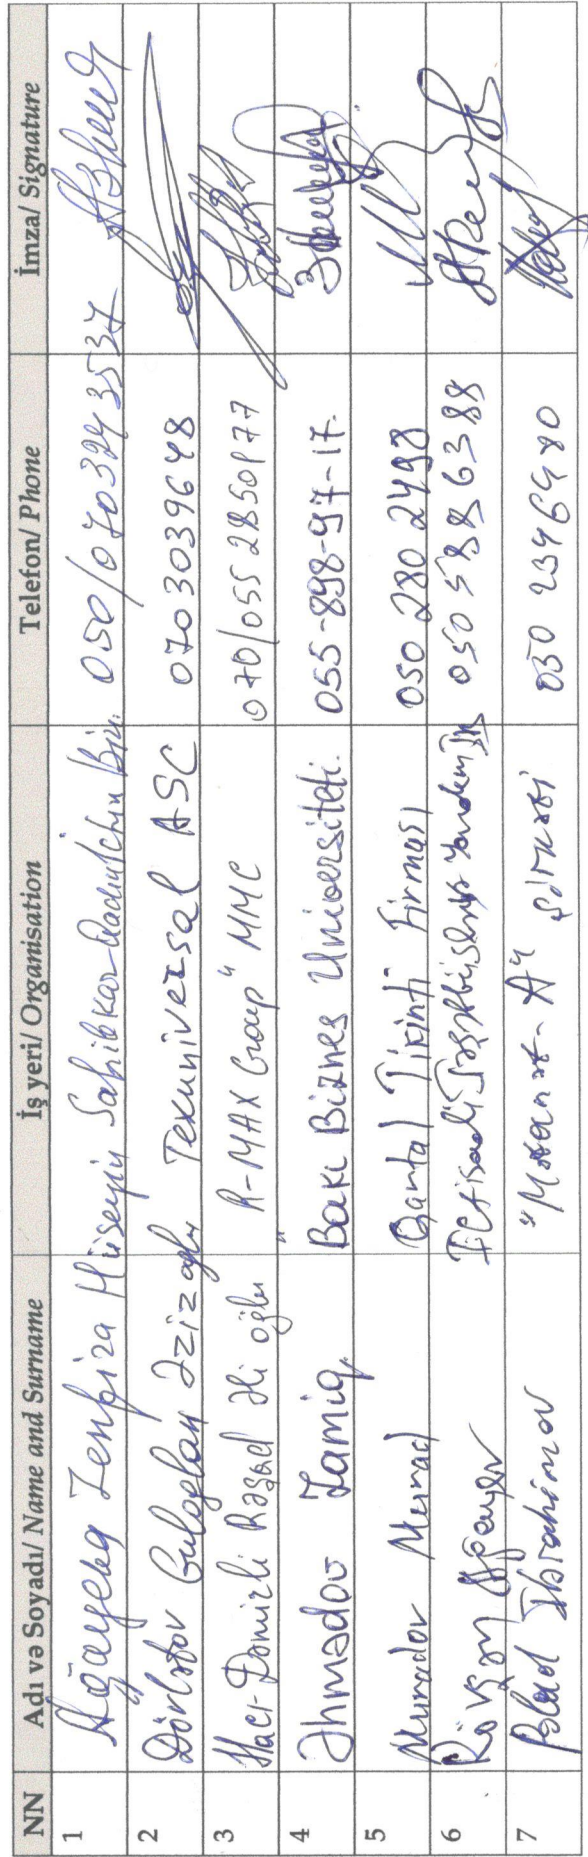 NN Adı və Soyadı/ Name and Surname İş yeri/ Organisation Telefon/ Phone İmza/ Signature
1 Ağayeva Zenfira Hüseyin Sahibkar Qadınlar
2 Dövlətov Guloglan Əzizoglu Texuniversal ASC 070 303 96 48
3 Hacı-Dəmirli Rəşad Əli oğlu "R-MAX Group" MMC 070/055 2850177
4 Əhmədov Zamiq Bakı Biznes Universiteti. 055-898-97-17.
5 Muradov Murad Qantal Tikinti Firması 050 280 2498
6 Rövşən Ağayev İqtisadi Təşəbbüslərə Yardım İB 050 588 63 88
7 Bəhləd İbrahimov "Mətanət-A" şirkəti 050 2346480